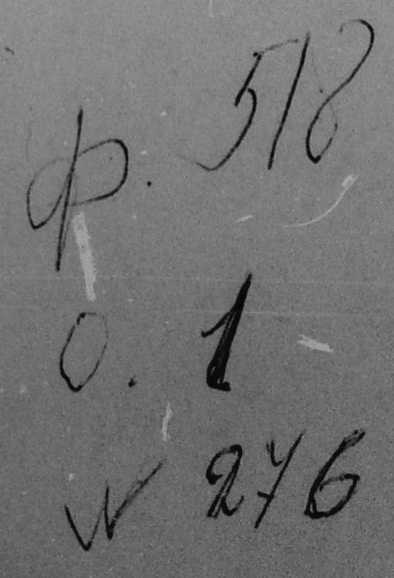 ф. 518
О. 1
N 276